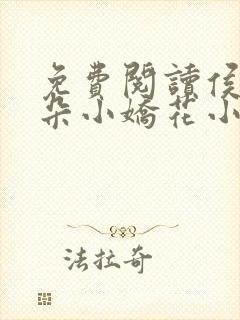 免費閱讀侯
朵小嬌花小
法拉奇